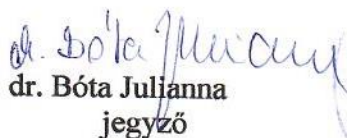 dr. Bóta Julianna
dr. Bóta Julianna
jegyző